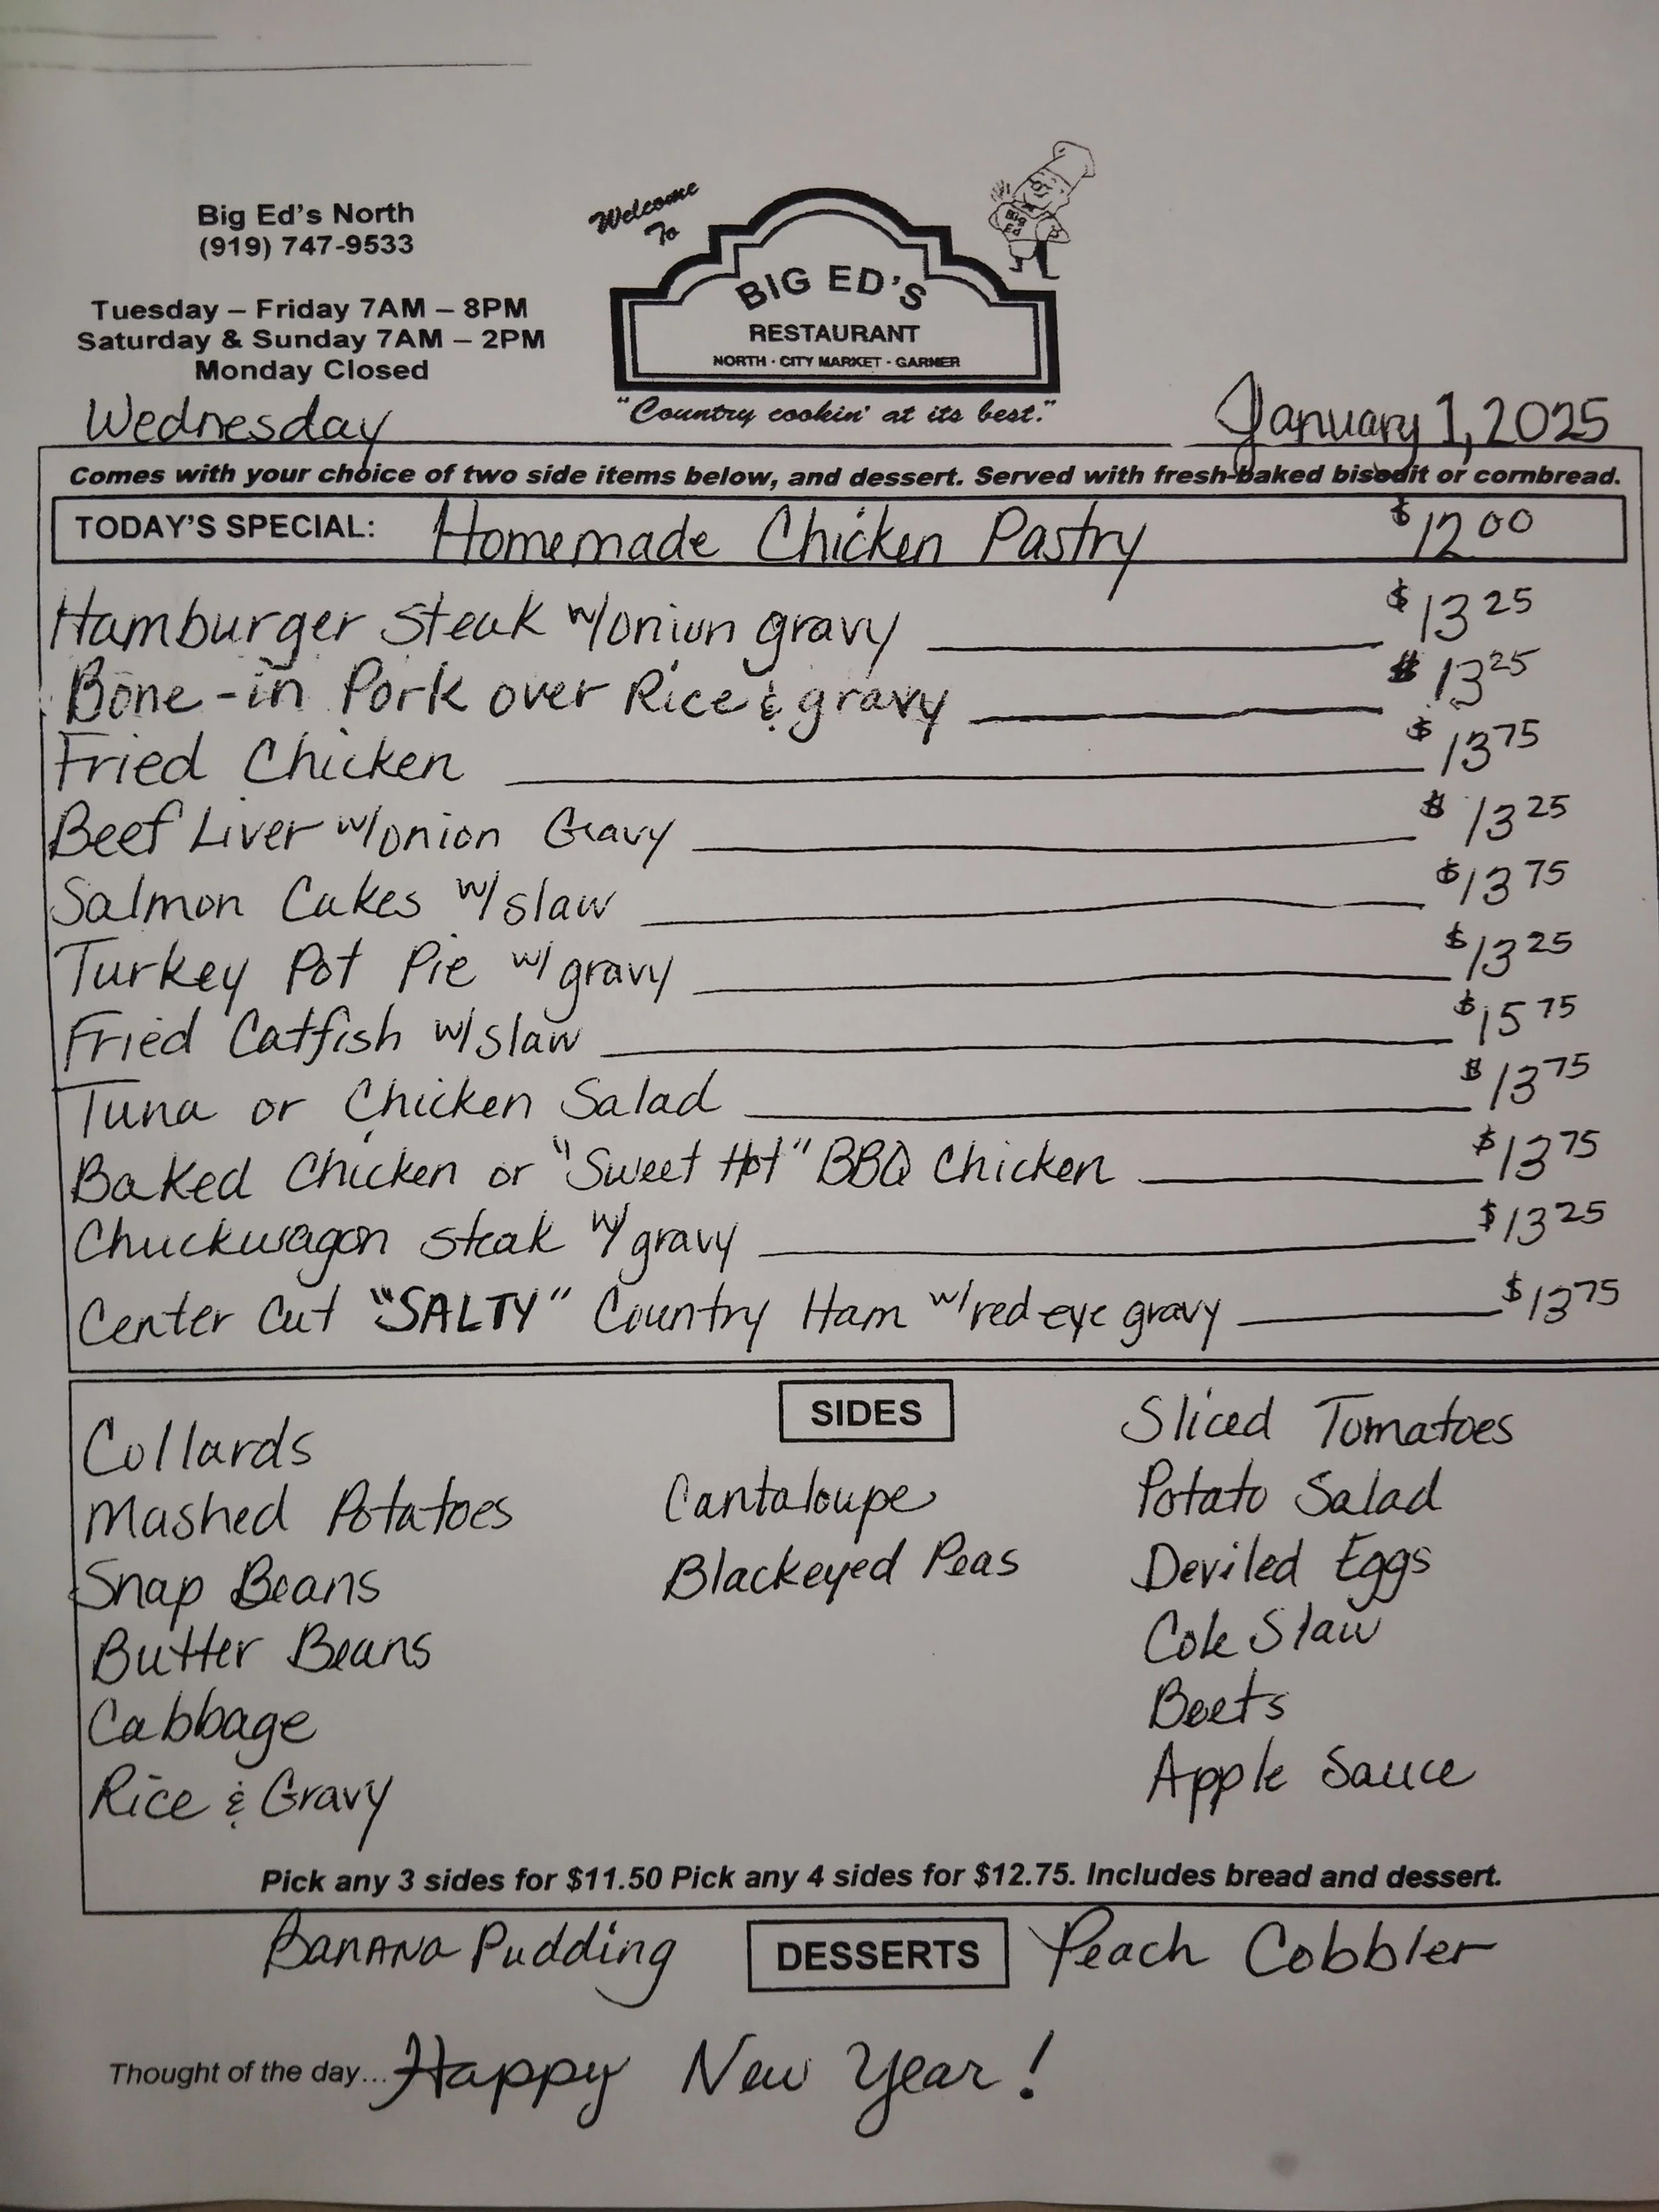 Big Ed's North
(919) 747-9533
Tuesday – Friday 7AM – 8PM
Saturday & Sunday 7AM – 2PM
Monday Closed
Welcome
To
Big
Ed
BIG ED'S
RESTAURANT
NORTH · CITY MARKET · GARNER
"Country cookin' at its best."
Wednesday January 1, 2025
Comes with your choice of two side items below, and dessert. Served with fresh-baked biscuit or cornbread.
TODAY'S SPECIAL: Homemade Chicken Pastry $12 00
Hamburger steak w/onion gravy $13 25
Bone-in Pork over Rice & gravy $13 25
Fried Chicken $13 75
Beef Liver w/onion Gravy $13 25
Salmon Cakes w/slaw $13 75
Turkey Pot Pie w/ gravy $13 25
Fried Catfish w/slaw $15 75
Tuna or Chicken Salad $13 75
Baked Chicken or "Sweet Hot" BBQ Chicken $13 75
Chuckwagon steak w/ gravy $13 25
Center Cut "SALTY" Country Ham w/red-eye gravy $13 75
SIDES
Collards
Mashed Potatoes
Snap Beans
Butter Beans
Cabbage
Rice & Gravy
Cantaloupe
Blackeyed Peas
Sliced Tomatoes
Potato Salad
Deviled Eggs
Cole Slaw
Beets
Apple Sauce
Pick any 3 sides for $11.50 Pick any 4 sides for $12.75. Includes bread and dessert.
Banana Pudding DESSERTS Peach Cobbler
Thought of the day... Happy New Year!